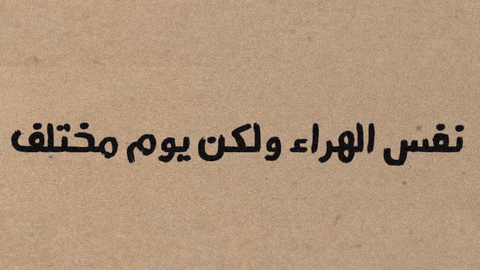 نفس الهراء ولكن يوم مختلف